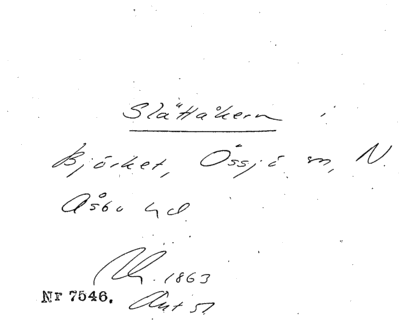 Slättåkern i
Björket, Össjö sn, N.
Åsbo hd
1863
Nr 7546.